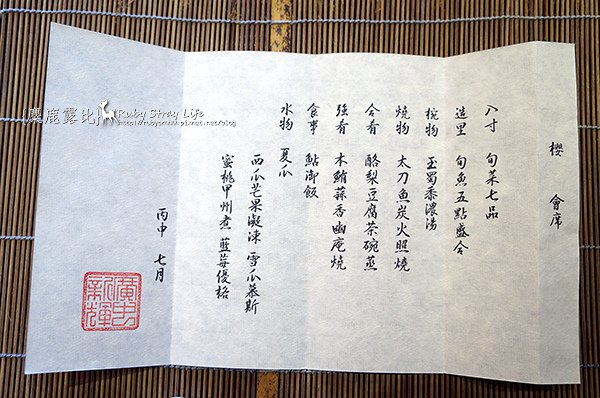 櫻 會席
入寸 旬菜七品
造里 旬魚五點盛合
椀物 玉蜀黍濃湯
燒物 太刀魚炭火照燒
合肴 酪梨豆腐茶碗蒸
強肴 木鮪蒜香幽庵燒
食事 鮎御飯
水物 夏瓜
西瓜芒果凝凍 雪瓜慕斯
蜜桃甲州煮 藍莓優格
丙申 七月
麋鹿露比
Ruby Stray Life